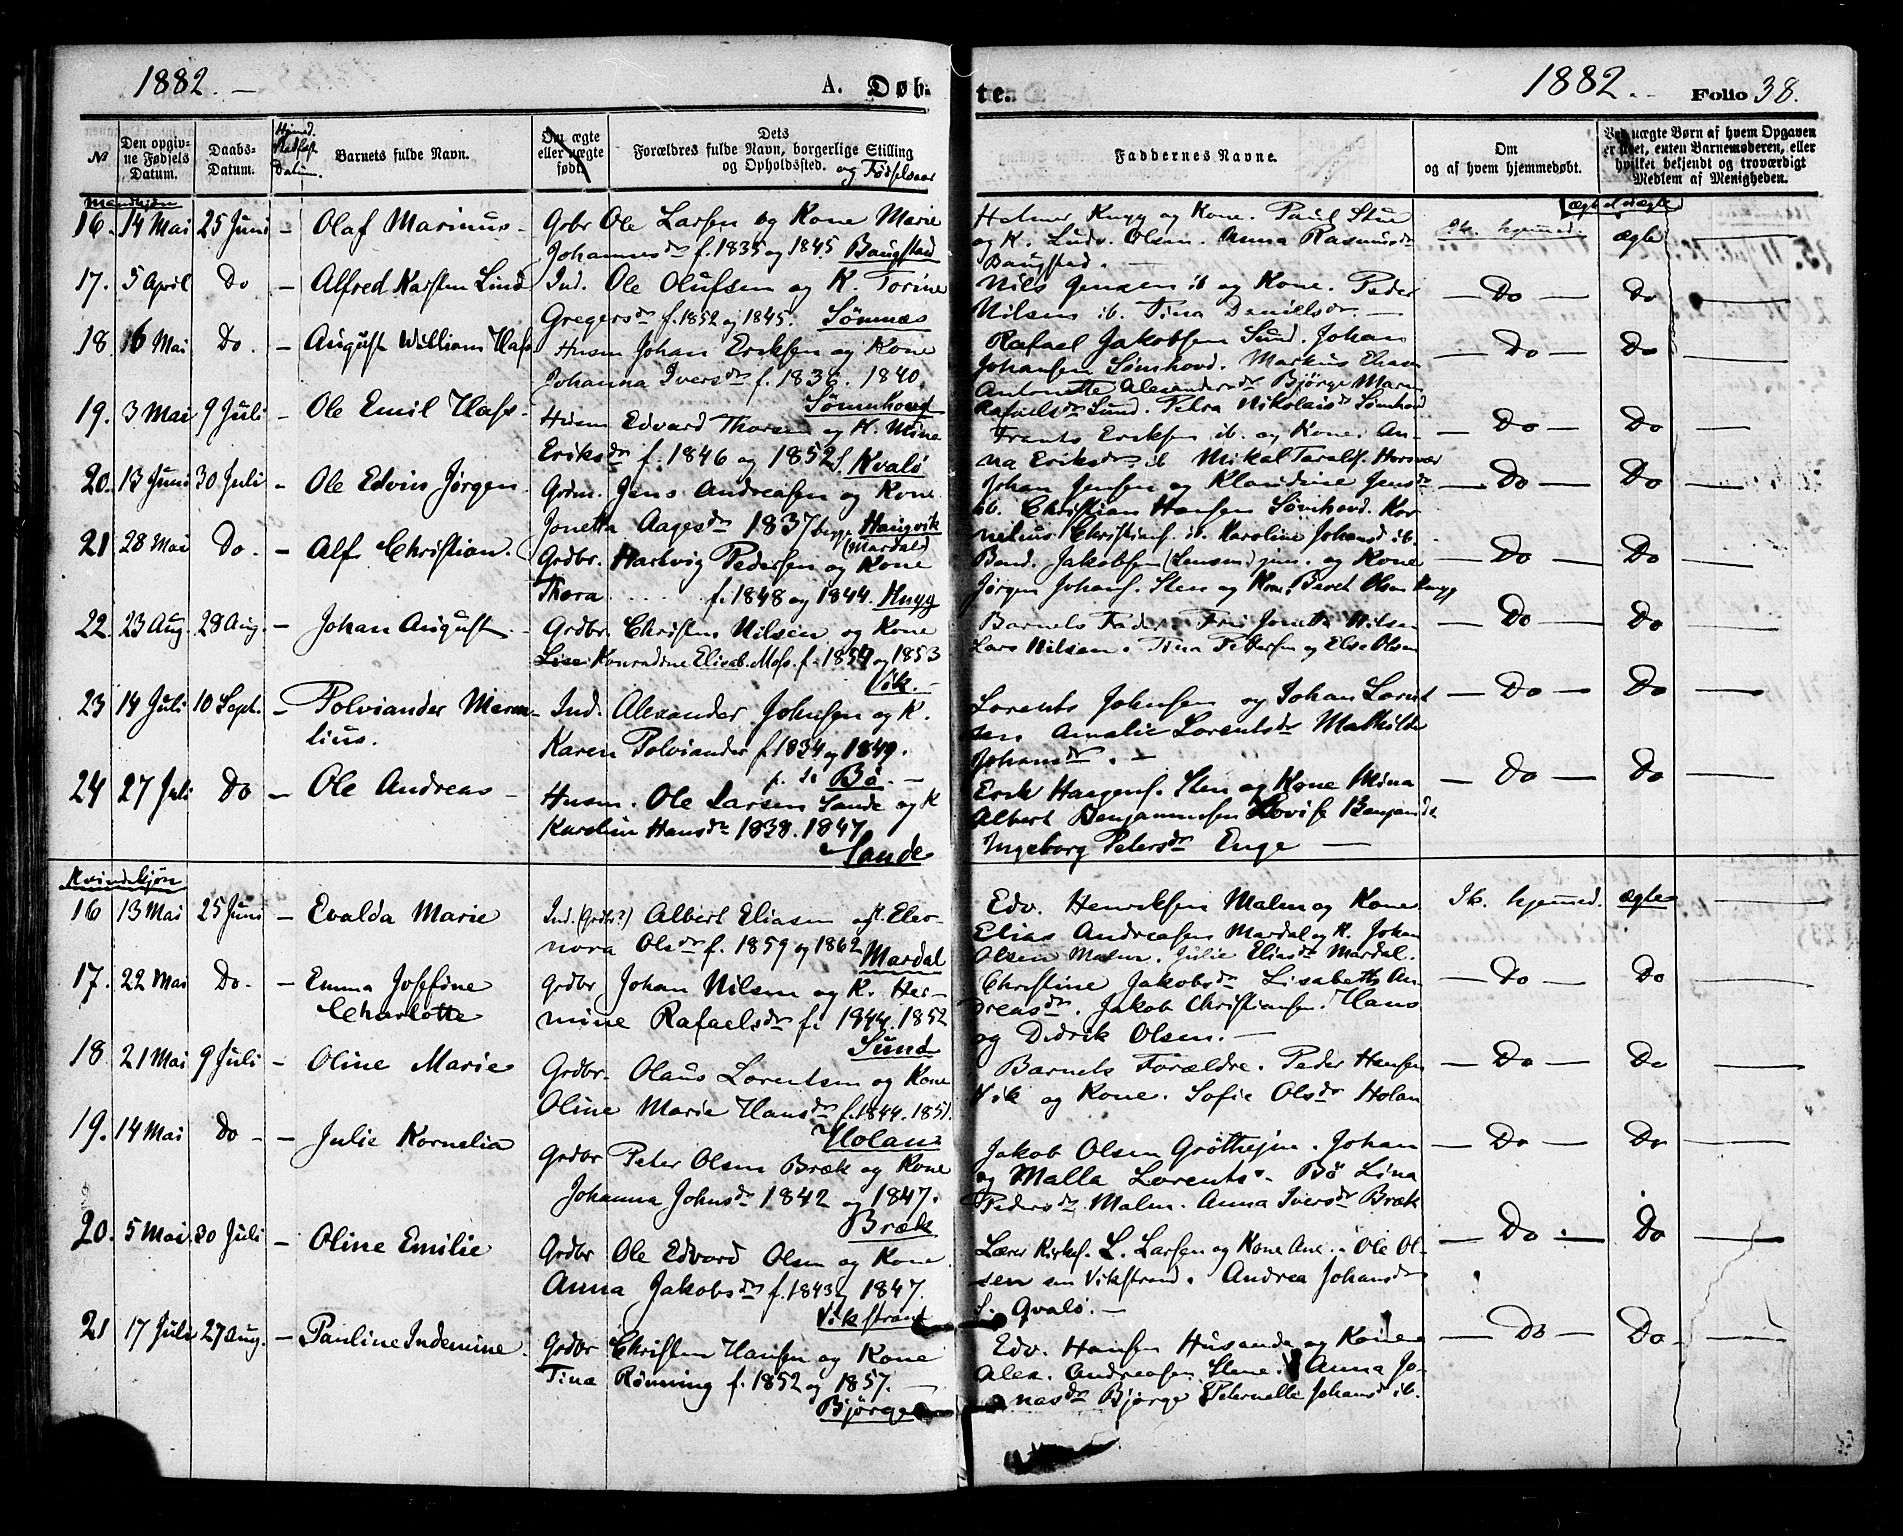 1882. —
A. Døb-
te.
1882. -
Folio 38.
№
Den opgiv-
ne Fødsels
Datum.
Daabs-
Datum.
Hjemd.
Stadfæst.
Datum.
Barnets fulde Navn.
Om ægte
eller uægte
født.
Dets
Forældres fulde Navn, borgerlige Stilling
og Opholdssted. og Fødselsaar
Faddernes Navne.
Om
og af hvem hjemmedøbt.
Ved uægte Børn af hvem Opgaven
er skeet, enten Barnemoderen, eller
hvilket bekjendt og troværdigt
Medlem af Menigheden.
Mandkjøn
ægte el. uægte
16. 14 Mai 25 Juni - Olaf Marinus - Grbr Ole Larsen og Kone Marie
Johannesdr f. 1835 og 1845 Baugstad
Holmer Knyg og Kone. Paul Stue
og K. Ludv. Olsen. Anna Rasmusdr
Baugstad. —
Ik. hjemmed. ægte
17. 5 April Do - Alfred Karsten Lind Ind. Ole Olufsen og K. Torine
Gregersdr f. 1852 og 1845. Sömnæs
Nils Jensen ib og Kone. Peder
Nilsen ib. Tina Danielsdr. —
— Do — Do
18. 16 Mai Do. - August William Hafs. Husm Johan Eriksen og Kone
Johanna Iversdr f. 1836. 1840
Sömnhovd
Rafael Jakobsen Sund. Johan
Johansen Sömhovd. Markus
Antonette Alexandersdr Björge Maren
Rafaelsdr Sund. Petra Nikolaisdr Sömhovd
— Do — Do
19. 3 Mai 9 Juli - Ole Emil Hafs - Husm Edvard Thorsen og K. Mine
Eriksdr f. 1846 og 1852 S. Kvalö
Frants Eriksen ib. og Kone. An-
na Eriksdr ib Mikal Taralds. Horsvær
— Do — Do
20. 13 Juni 30 Juli - Ole Edvin Jörgen Grdm. Jens Andreasen og Kone
Jonetta Aagesdr 1837 begge Haugvik
(Mardal)
Johan Jensen og Klaudine Jensdr
ib. Christian Hansen Sömhovd. Kor-
nelius Christians. ib. Karoline Johansd ib.
— Do — Do
21 28 Mai Do. - Alf Christian. Grdbr. Hartvig Pedersen og Kone
Thora ..... f. 1848 og 1844. Knyg
Band. Jakobsen (Lensm) jun. og Kone
Jörgen Johans. Sten og Kone, Beret Olsen Knyg
— Do — Do
22. 23 Aug. 28 Aug. - Johan August. - Grdbr. Christen Nilsen og Kone
Lise Konradine Elisab. Mos. f. 1854 og 1853
Vik. —
Barnets Fader. Fru Jonetta Nilsen
Lars Nilsen. Tina Pettersen og Else Olsen
— Do — Do
23 14 Juli 10 Sept. - Polviander Mirea-
lius.
Ind. Alexander Johnsen og K.
Karen Polviander f. 1834 og 1849.
Bö. —
Lorents Johnsen og Johan Lorent-
sen Amalie Lorentsdr Mathilde
Johansdr. —
— Do — Do
24 27 Juli Do - Ole Andreas - Husm. Ole Larsen Sande og K
Karolin Hansdr 1838. 1847
Sande
Erik Haagens. Sten og Kone Mina
Albert Benjaminsen Lovise Benjamdr
Ingeborg Petersdr Enge —
— Do — Do
Kvindekjön
16 13 Mai 25 Juni - Evalda Marie Ind. (Grdbr?) Albert Eliasen og K. Eleo-
nora Olsdr f. 1859 og 1862 Mardal
Edv. Henriksen Malm og Kone
Elias Andreasen Mardal og K. Johan
Olsen Malm. Julie Eliasdr Mardal.
Ik. hjemmed. ægte
17. 22 Mai Do. - Emma Josefine
Charlotte
Grdbr Johan Nilsen og K. Her-
mine Rafaelsdr f. 1844. 1852
Sund
Christine Jakobsdr Lisabeth An-
dreasdr. Jakob Christiansen. Hans
og Didrik Olsen. —
— Do — Do
18 21 Mai 9 Juli - Oline Marie Grdbr. Olaus Lorentsen og Kone
Oline Marie Hansdr f. 1844. 1851.
Holan
Barnets Forældre. Peder Hansen
Vik og Kone. Sofie Olsdr Holan
— Do — Do
19. 14 Mai Do - - Julie Kornelia Grdbr Peter Olsen Bræk og Kone
Johanna Johnsdr 1842 og 1847.
Bræk
Jakob Olsen Gröttheim. Johan
og Malla Lorents. Bö Lina
Pedersdr Malm. Anna Iversdr Bræk
— Do — Do
20. 5 Mai 30 Juli - Oline Emilie Grdbr Ole Edvard Olsen og Kone
Anna Jakobsdr f. 1843 og 1847.
Vikstrand
Lærer Kirkes. L. Larsen og Kone Ane. Ole Ol-
sen sen Vikstrand. Andrea Johansdr
S. Qvalö. —
— Do — Do
21 17 Juli 27 Aug. - Pauline Indemine. Grdbr Christen Hansen og Kone
Tina Rönning f. 1852 og 1857. —
Björge
Edv. Hansen Husande og Kone
Alex. Andreasen Stene. Anna Jo-
nasdr Björge Peternelle Johansd ib.
— Do — Do